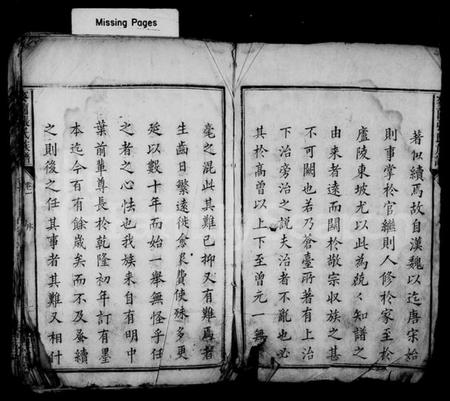 Missing Pages
著似續焉故自漢魏以迄唐宋始
則事掌於官繼則人修於家至於
廬陵東坡尤以此為兢々知譜之
由来者遠而關於敬宗収族之甚
不可闕也若乃蒼臺所著有上治
下治旁治之説夫治者不亂也必
其於高曾以上下至曾元一無
毫之混此其難已抑又有難焉者
生齒日繁遠徙僉艮費使殊多更
延以數十年而始一舉無怪乎任
之者之心怯也我族来自有明中
葉前輩尊長於乾隆初年訂有墨
本迄今百有餘歲矣而不及蒸續
之則後之任其事者其難又相什